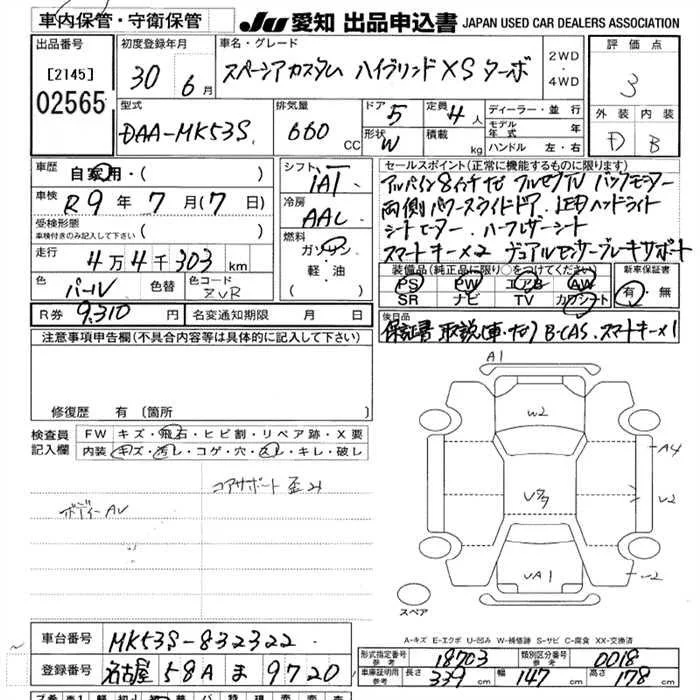 車内保管・守衛保管
JU 愛知 出品申込書 JAPAN USED CAR DEALERS ASSOCIATION
出品番号
[2145]
02565
初度登録年月
30 6月
車名・グレード
スペーシアカスタム ハイブリッドXS ターボ
2WD
4WD
評価点
3
外装 内装
D B
型式
DAA-MK53S
排気量
660 CC
ドア 5
形状 W
定員 4人
積載 kg
ディーラー・並行
モデル年式 年
ハンドル 左・右
車歴
自家用・( )
車検
R9年 7月(7日)
受検形態
車検付きのみ記入して下さい ( )
走行
4万4千303km
色
パール
色替
色コード
ZVR
シフト
IAT
冷房
AAC
燃料
ガソリン
軽・油
( )
セールスポイント(正常に機能するものに限ります)
アルパイン8インチナビ フルセグTV バックモニター
両側パワースライドドア.LEDヘッドライト
シートヒーター.ハーフレザーシート
スマートキー×2 デュアルセンサーブレーキサポート
装備品(純正品に限り○をつけてください)
PS PW エアB AW
SR ナビ TV カワシート
新車保証書
有・無
R券 9,310円
名変通知期限 月 日
後日品
保証書 取説(車・ナビ) B-CAS.スマートキー×1
注意事項申告欄(不具合内容等は具体的に記入して下さい)
修復歴 有(箇所
検査員
記入欄
FW キズ・飛石・ヒビ割・リペア跡・X要
内装 キズ・汚レ・コゲ・穴・スレ・キレ・破レ
コアサポート歪み
ボディーAV
A1
W2
A4
V2
VA1
スペア
A-キズ E-エクボ U-凹み W-補修跡 S-サビ C-腐食 XX-交換済
車台番号
MK53S-832322
登録番号
名古屋 58A ま 9720
形式指定番号
参考
18703
類別区分番号
参考
0018
車庫証明用
参考
長さ 339cm
幅 147cm
高さ 178cm